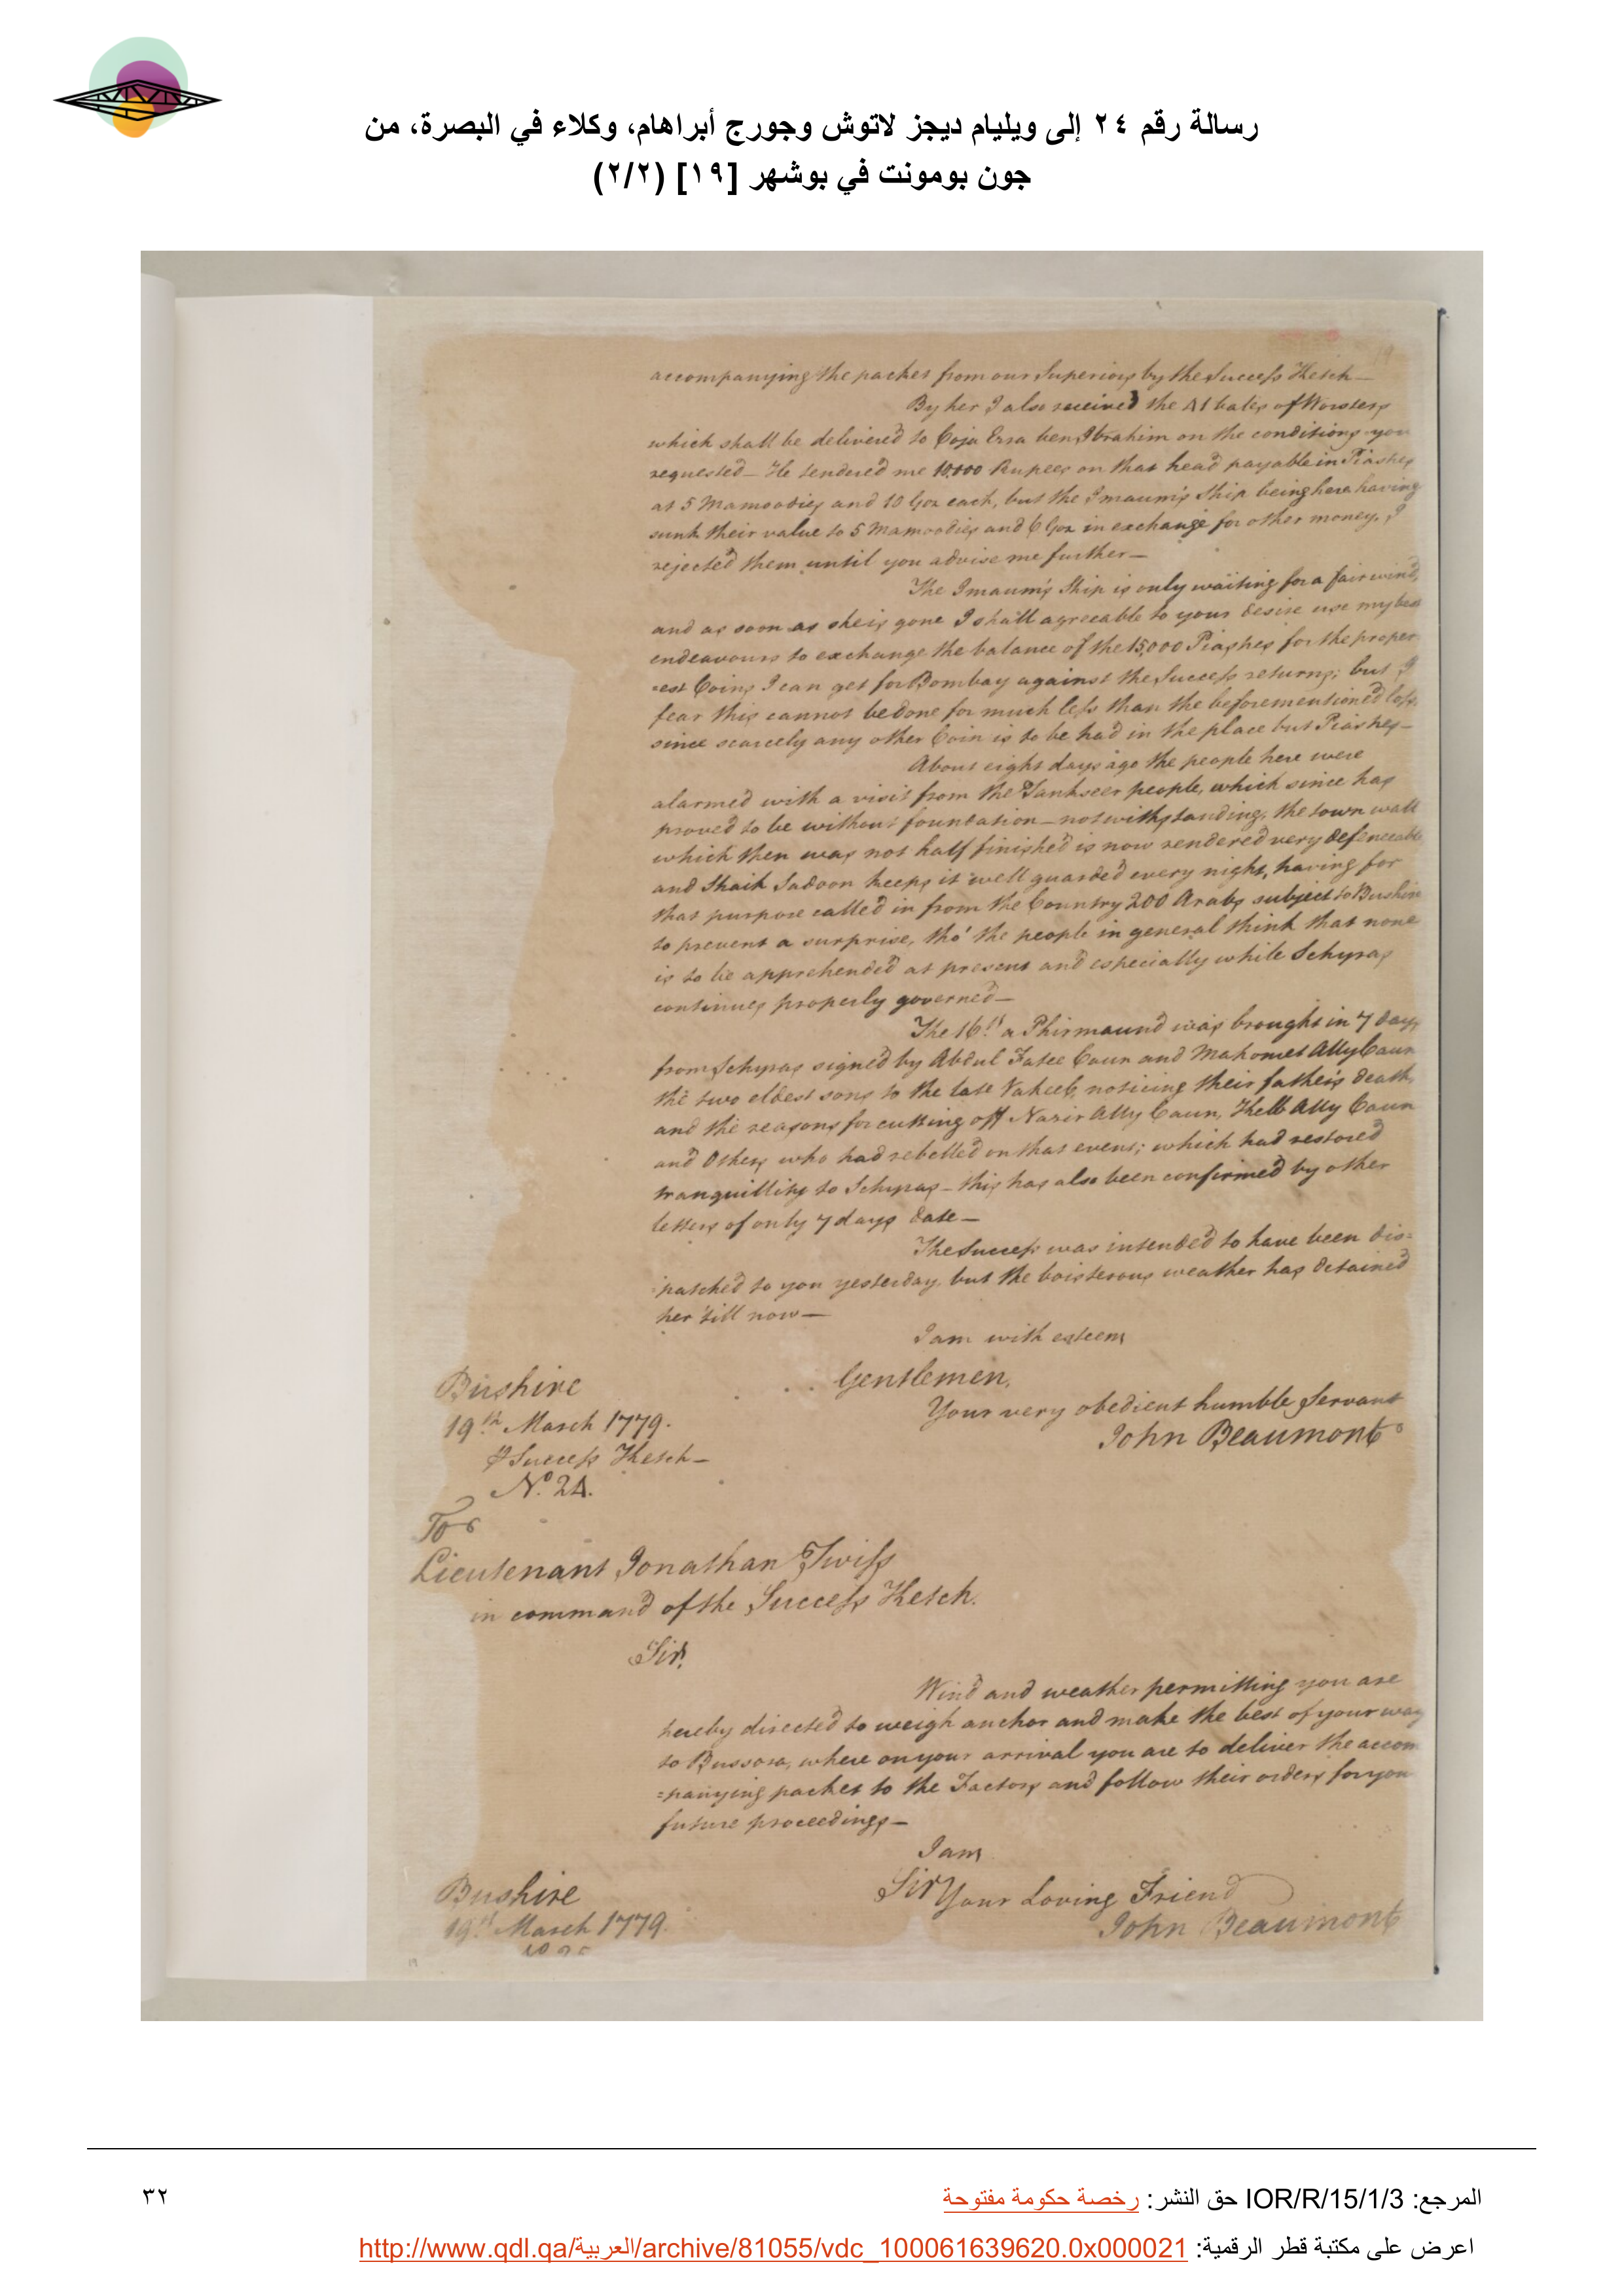 رسالة رقم ٢٤ إلى ويليام ديجز لاتوش وجورج أبراهام، وكلاء في البصرة، من
جون بومونت في بوشهر [١٩] (٢/٢)
accompanying the packet from our Superiors by the Success Ketch—
By her I also received the 41 bales of Worsters
which shall be delivered to Coja Essa ben Ibrahim on the conditions you
requested— He tendered me 10,000 Rupees on that head payable in Piastres
at 5 Mamoodies and 10 Goz each, but the Imaum's Ship being here having
sunk their value to 5 Mamoodies and 6 Goz in exchange for other money, I
rejected them until you advise me further—
The Imaum's Ship is only waiting for a fair wind,
and as soon as she is gone I shall agreeable to your desire use my best
endeavours to exchange the balance of the 15,000 Piastres for the proper
=est Coins I can get for Bombay against the Success returns; but I
fear this cannot be done for much less than the beforementioned loss,
since scarcely any other Coin is to be had in the place but Piastres—
About eight days ago the people here were
alarmed with a visit from the Tankseer people, which since has
proved to be without foundation— notwithstanding, the town wall
which then was not half finished is now rendered very defenceable
and Shaik Sadoon keeps it well guarded every night, having for
that purpose called in from the Country 200 Arabs subject to Bushire
to prevent a surprise, tho' the people in general think that none
is to be apprehended at present and especially while Schyras
continues properly governed—
The 16th a Phirmaund was brought in 7 days
from Schyras signed by Abdul Fatee Caun and Mahomet Ally Caun
the two eldest sons to the late Vakeel, noticing their father's death,
and the reasons for cutting off Nazir Ally Caun, Kell Ally Caun
and Others who had rebelled on that event; which had restored
tranquillity to Schyras— this has also been confirmed by other
letters of only 7 days date—
The Success was intended to have been dis=
=patched to you yesterday, but the boisterous weather has detained
her 'till now—
I am with esteem
Gentlemen,
Your very obedient humble Servant
John Beaumont
Bushire
19th March 1779.
℘ Success Ketch—
No. 24.
To
Lieutenant Jonathan Twiss
in command of the Success Ketch.
Sir,
Wind and weather permitting you are
hereby directed to weigh anchor and make the best of your way
to Bussora, where on your arrival you are to deliver the accom
=panying packet to the Factory and follow their orders for you
future proceedings—
I am
Sir Your Loving Friend
John Beaumont
Bushire
19th March 1779.
المرجع: IOR/R/15/1/3 حق النشر: رخصة حكومة مفتوحة
٣٢
اعرض على مكتبة قطر الرقمية: http://www.qdl.qa/العربية/archive/81055/vdc_100061639620.0x000021